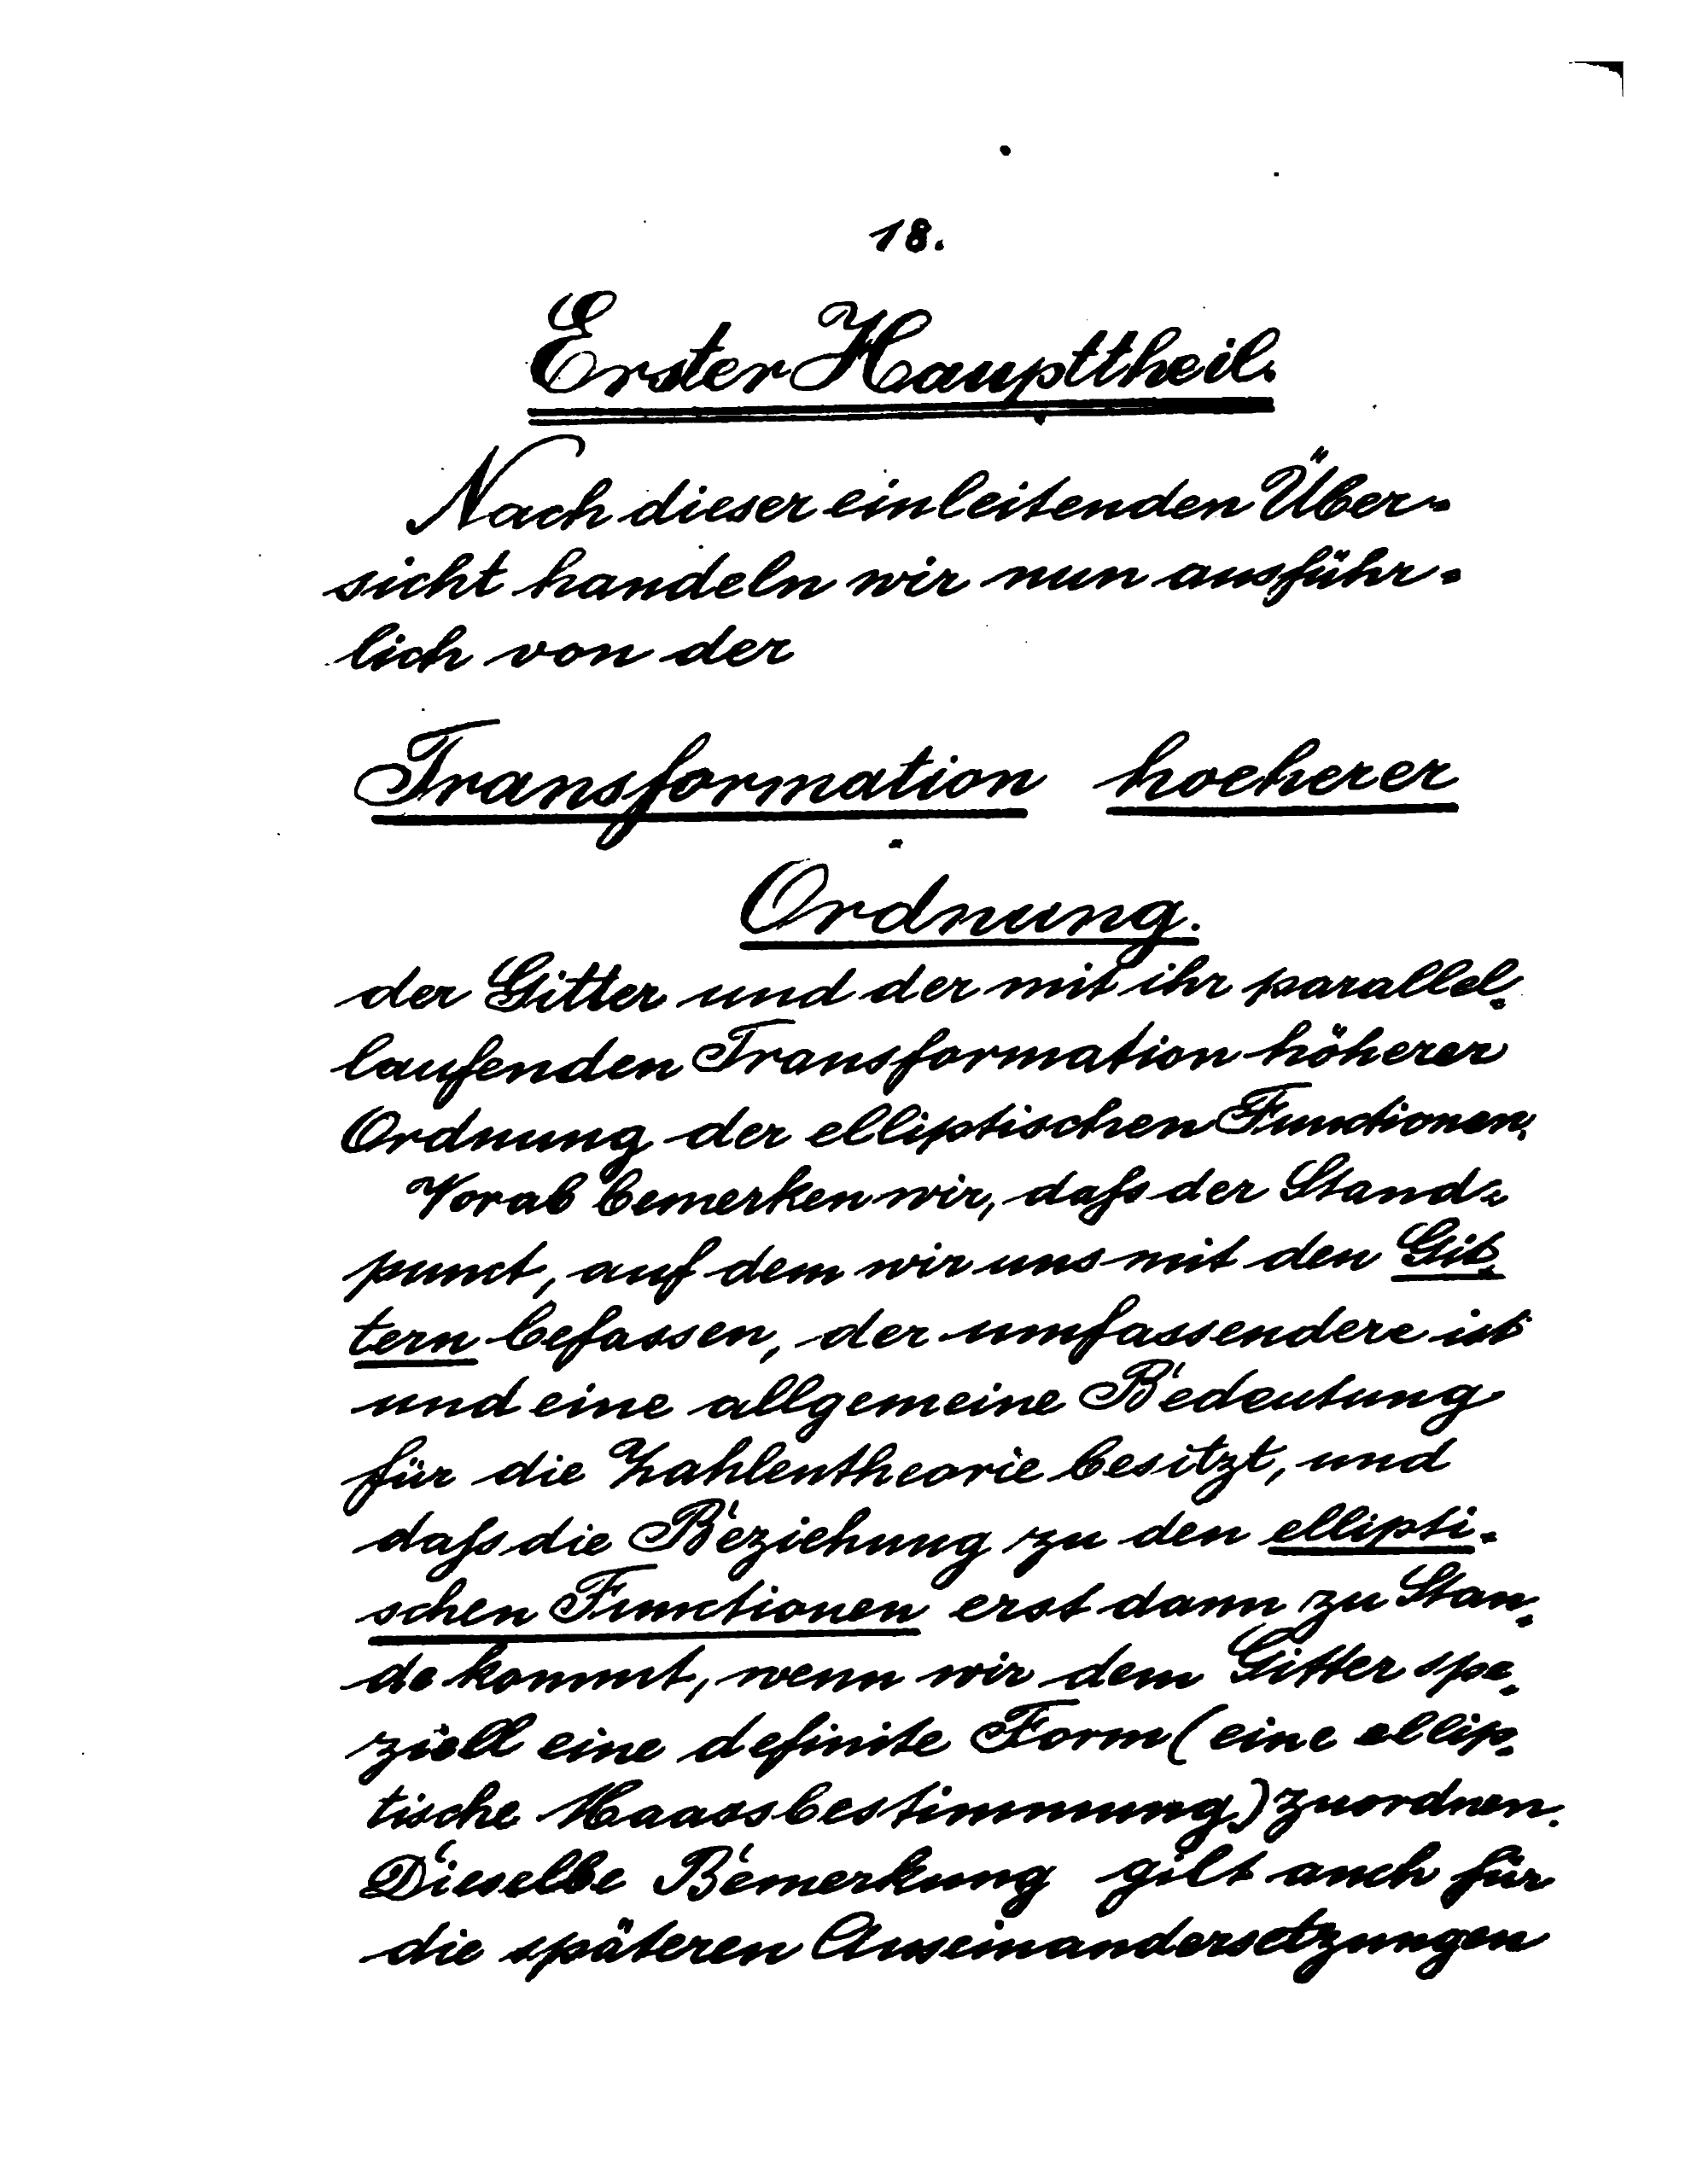 18.
Erster Haupttheil.
Nach dieser einleitenden Über-
sicht handeln wir nun ausführ-
lich von der
Transformation hoeherer
Ordnung.
der Gitter und der mit ihr parallel-
laufenden Transformation höherer
Ordnung der elliptischen Functionen.
Vorab bemerken wir, daſs der Stand-
punct, auf dem wir uns mit den Git-
tern befassen, der umfassendere ist
und eine allgemeine Bedeutung
für die Zahlentheorie besitzt, und
daſs die Beziehung zu den ellipti-
schen Functionen erst dann zu Stan-
de kommt, wenn wir dem Gitter spe-
ziell eine definite Form (eine ellip-
tische Maassbestimmung) zuordnen.
Dieselbe Bemerkung gilt auch für
die späteren Auseinandersetzungen